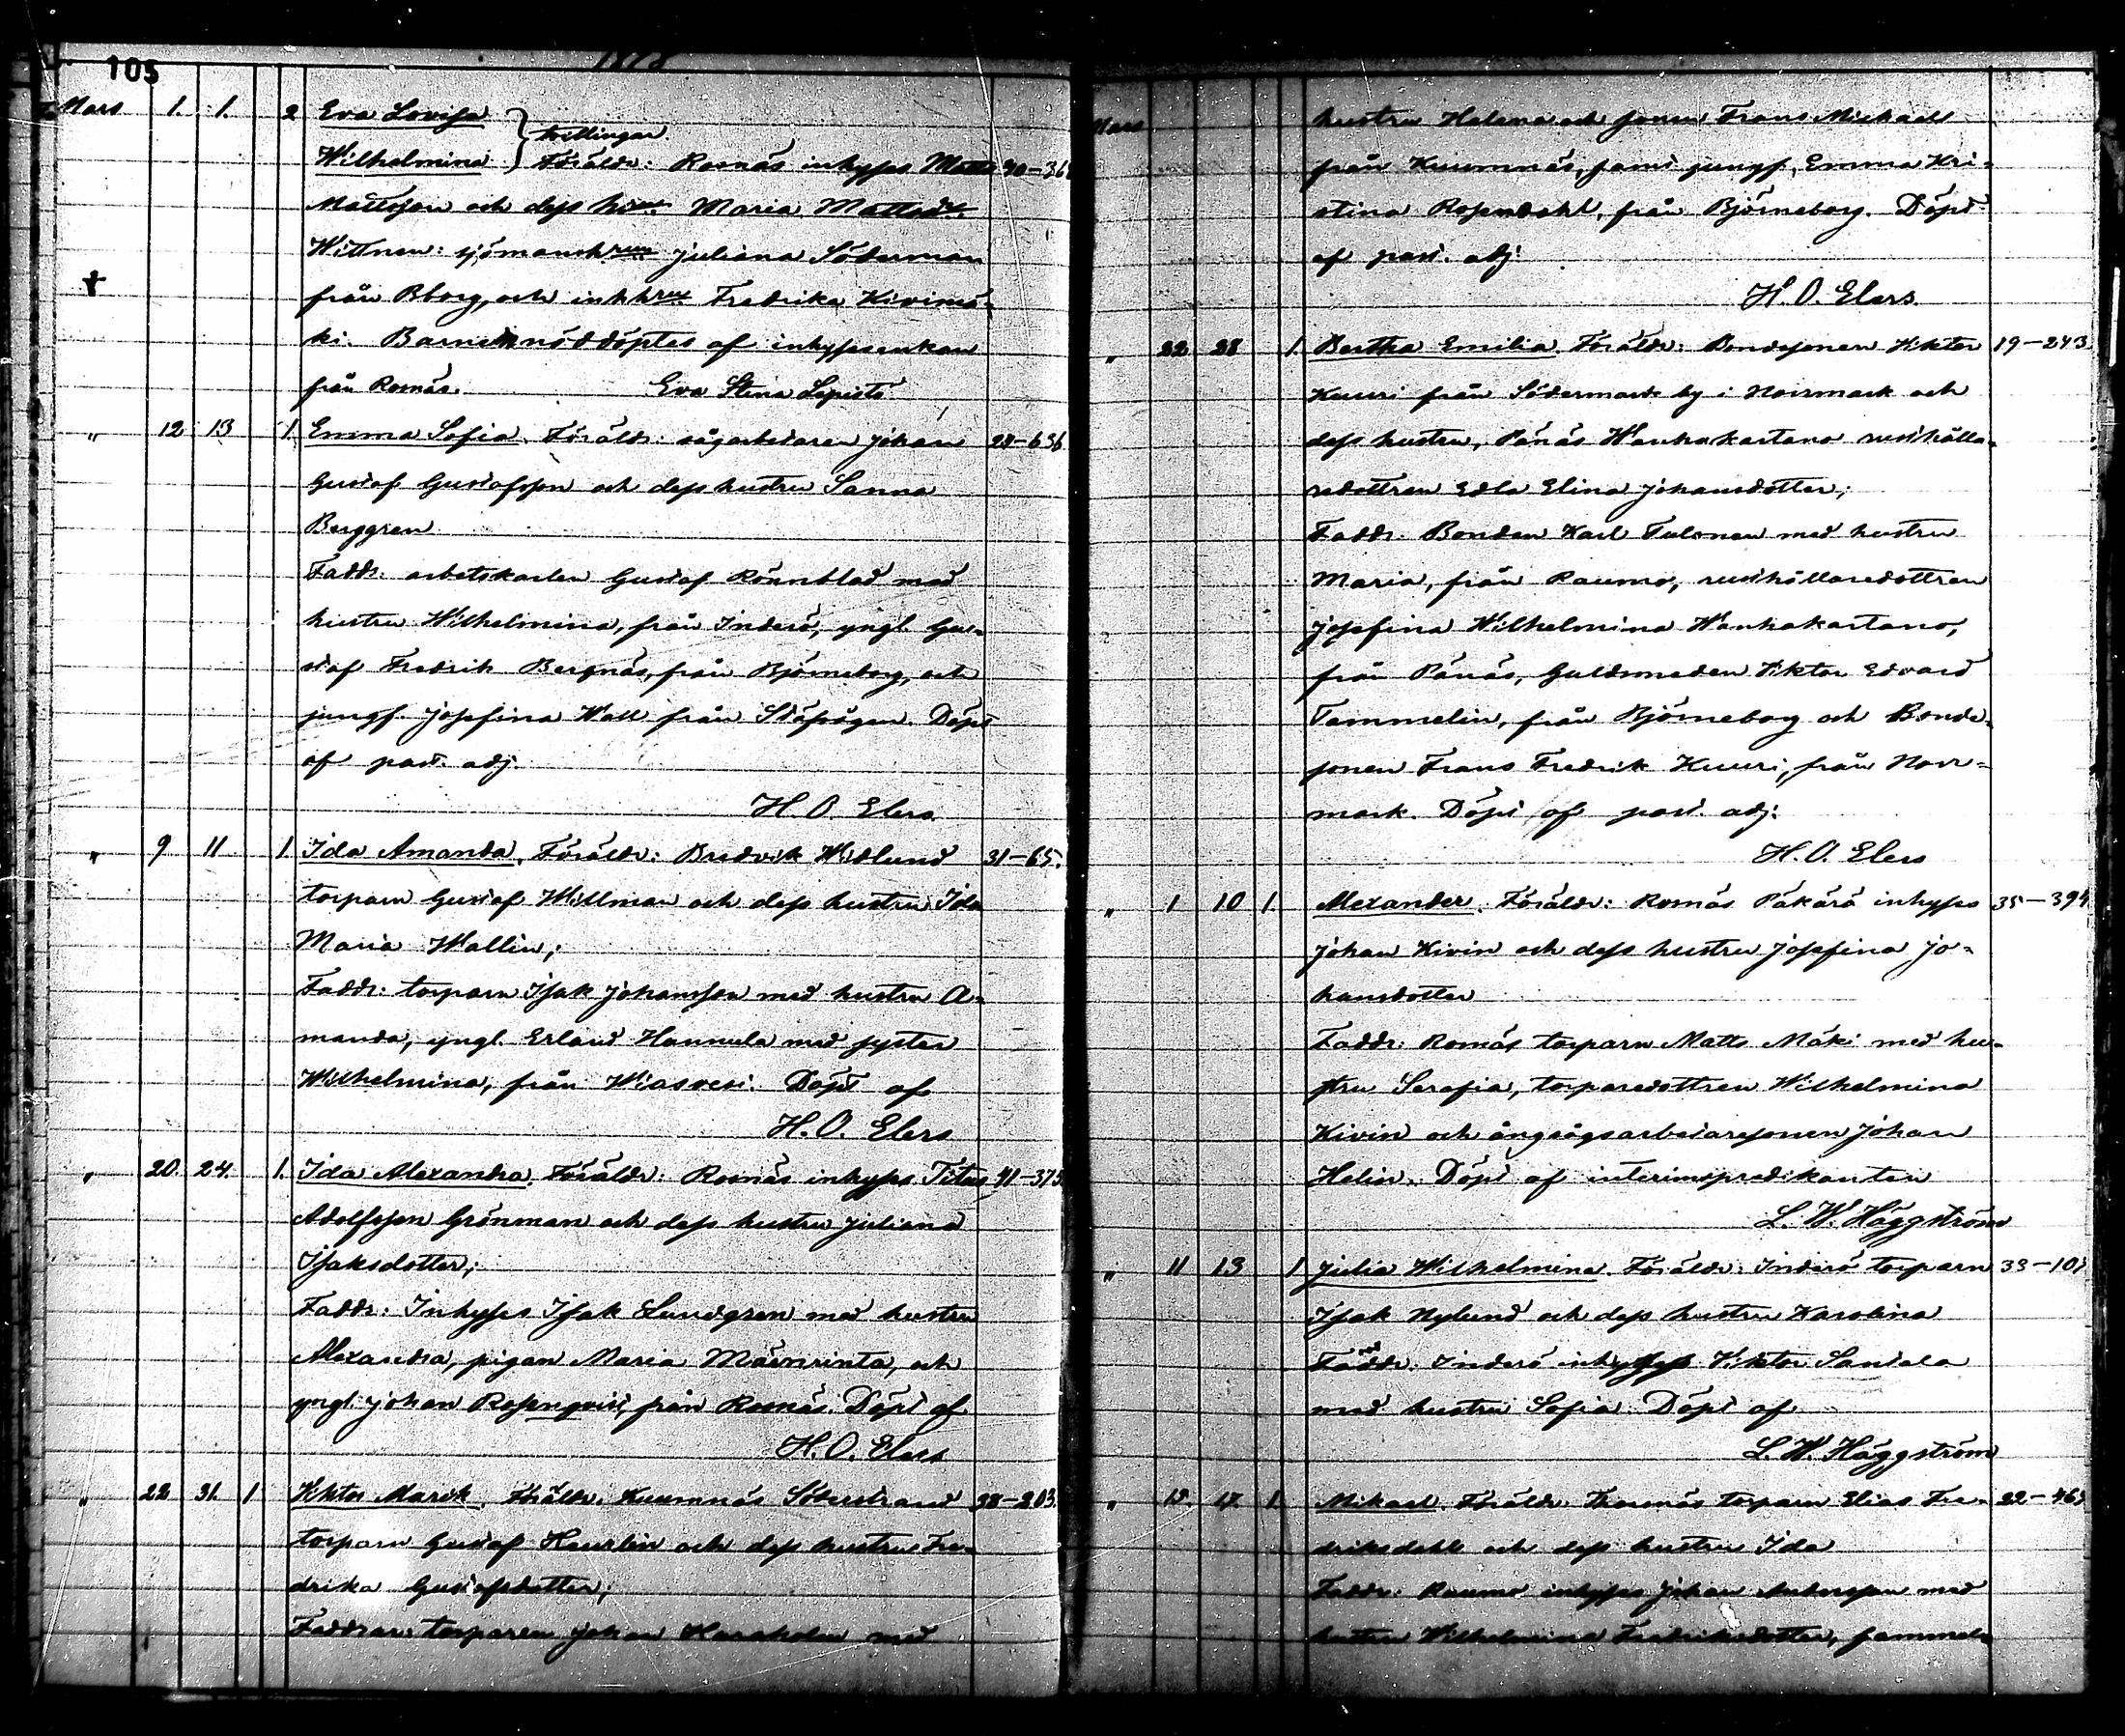 105
1878
Mars 1. 1. 2 Eva Lovisa
Wilhelmina } tvillingar Föräldr: Rosnäs inhyses Matts 40-36
Mattsson och dess hru Maria Mattsdr
Wittnen: sjömanshrun Juliana Söderman
från Bborg, och inhhru Fredrika Kivimä-
ki. Barnen nöddöptes af inhysesenkan
från Rosnäs. Eva Stina Lepistö
" 12 13 1 Emma Sofia. Föräldr: sågarbetaren Johan 28-636
Gustaf Gustafsson och dess hustru Sanna
Berggren
Faddr: arbetskarlen Gustaf Rönnblad med
hustru Wilhelmina, från Inderö, yngl. Gu-
staf Fredrik Bergnäs, från Björneborg, och
jungf. Josefina Wall från Stäfsögen. Döpt
af past. adj.
H. O. Elers
" 9 11 1 Ida Amanda. Föräldr: Bredvik Widlund 31-65.
torparn Gustaf Willman och dess hustru Ida
Maria Wallin;
Faddr: torparn Isak Johansson med hustru A-
manda, yngl. Erland Hannula med syster
Wilhelmina, från Wiasvesi. Döpt af
H. O. Elers
" 20. 24. 1. Ida Alexandra. Föräldr: Rosnäs inhyses Titus 41-375
Adolfsson Grönman och dess hustru Juliana
Isaksdotter;
Faddr: Inhyses Isak Lundgren med hustru
Alexandra, pigan Maria Mäenrinta, och
yngl. Johan Rosenqvist, från Rosnäs. Döpt af
H. O. Elers
" 22 31. 1 Viktor Marik. Föräldr: Kuumnäs Söderstrand 38-203.
torparn Gustaf Heurlin och dess hustru Fre-
drika Gustafsdotter;
Faddrar: torparen Johan Haraholm med
Mars hustru Helena och sonen Frans Mickael
från Kuumnäs, samt jungf. Emma Kri-
stina Rosendahl, från Björneborg. Döpt
af past. adj.
H. O. Elers.
" 22 28 1 Bertha Emilia. Föräldr: Bondesonen Viktor 19-243
Kuuri från Södermark by i Norrmark och
dess hustru, Pänäs Wanhakartano rusthålla-
redottren Edla Elina Johansdotter;
Faddr: Bonden Karl Tulonen med hustru
Maria, från Raumo, rusthållaredottren
Josefina Wilhelmina Wanhakartano,
från Pänäs, Guldsmeden Viktor Edvard
Tammelin, från Björneborg och Bonde-
sonen Frans Fredrik Kuuri, från Norr-
mark. Döpt af past. adj:
H. O. Elers
" 1 10 1 Alexander. Föräldr: Rosnäs Päkärä inhyses 35-394
Johan Kivin och dess hustru Josefina Jo-
hansdotter
Faddr: Rosnäs torparn Matts Mäki med hu-
stru Serafia, torparedottren Wilhelmina
Kivin och ångsågsarbetaresonen Johan
Helin. Döpt af interimspredikanten
L. W. Häggström
" 11 13 1 Julia Wilhelmina. Föräldr: Inderö torparn 33-101
Isak Nylund och dess hustru Karolina
Faddr: Inderö inhyses Viktor Santala
med hustru Sofia. Döpt af
L. W. Häggström
" 17. 1. Mikael. Föräldr: torparn Elias Fre- 22-465
driksdahl och dess hustru Ida
Faddr: Raumo inhyses Johan Andersson med
hustru Wilhelmina Fredriksdotter, sammel-